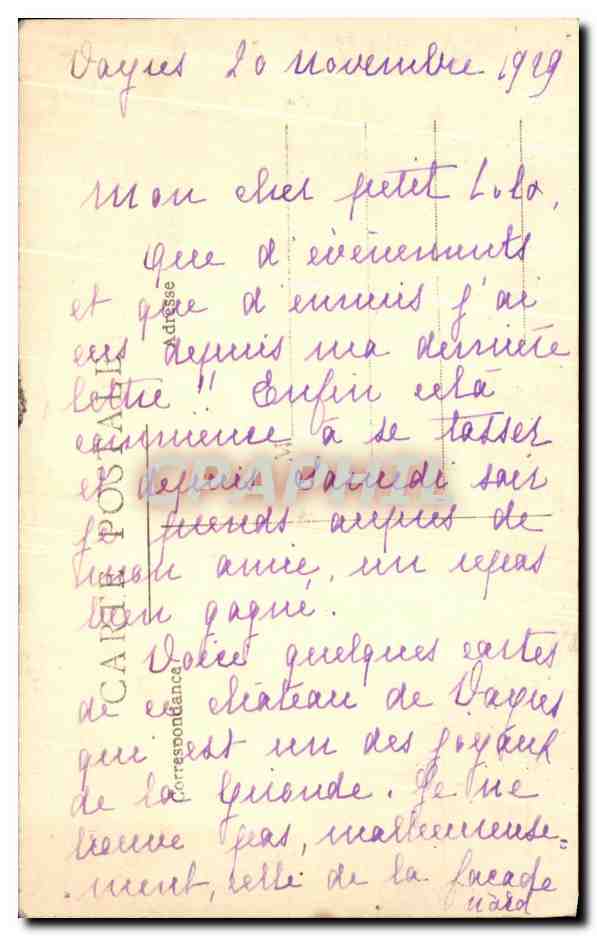 Vayres 20 novembre 1929
Mon cher petit Lolo,
Que d'évènements
et que d'ennuis j'ai
eus depuis ma dernière
lettre !! Enfin cela
commence à se tasser
et depuis samedi soir
je prends auprès de
mon amie, un repos
bien gagné.
Voici quelques cartes
de ce château de Vayres
qui est un des joyaux
de la Gironde. Je ne
trouve pas, malheureuse=
ment, celle de la façade
nord
CARTE POSTALE
Correspondance
Adresse
M